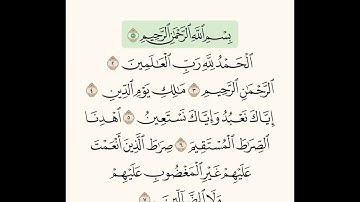 بِسْمِ ٱللَّهِ ٱلرَّحْمَٰنِ ٱلرَّحِيمِ ۝
ٱلْحَمْدُ لِلَّهِ رَبِّ ٱلْعَٰلَمِينَ ۝٢
ٱلرَّحْمَٰنِ ٱلرَّحِيمِ ۝٣ مَٰلِكِ يَوْمِ ٱلدِّينِ ۝٤
إِيَّاكَ نَعْبُدُ وَإِيَّاكَ نَسْتَعِينُ ۝٥ ٱهْدِنَا
ٱلصِّرَٰطَ ٱلْمُسْتَقِيمَ ۝٦ صِرَٰطَ ٱلَّذِينَ أَنْعَمْتَ
عَلَيْهِمْ غَيْرِ ٱلْمَغْضُوبِ عَلَيْهِمْ
وَلَا ٱلضَّآلِّينَ ۝٧